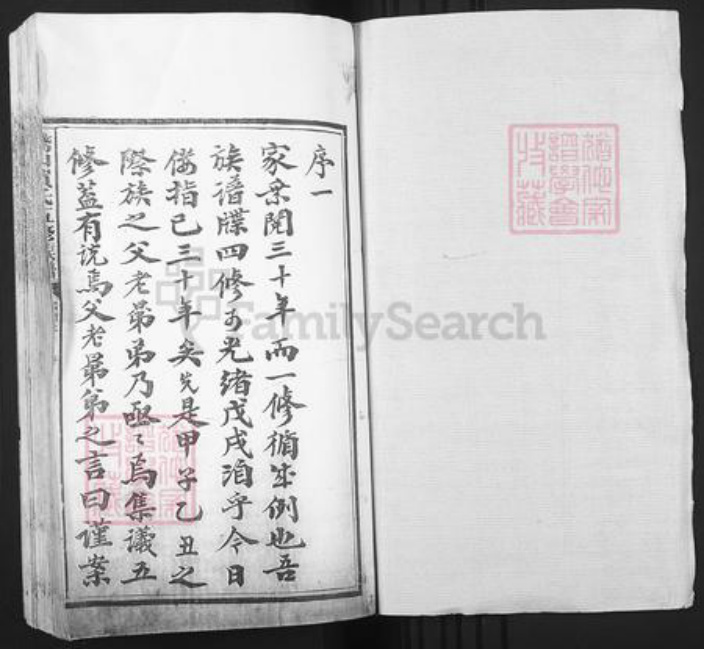 序一
家乘閱三十年而一修循成例也吾
族譜牒四修於光緒戊戌洎乎今日
僂指已三十年矣先是甲子乙丑之
際族之父老弟乃亟亟焉集議五
修蓋有說焉父老弟之言曰謹案
FamilySearch